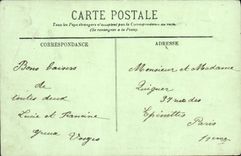 CARTE POSTALE
Tous les Pays étrangers n'acceptent pas la Correspondance au recto.
(Se renseigner à la Poste).
CORRESPONDANCE
Bons baisers
de
toutes deux
Lucie et Francine
Vosges
ADRESSE
Monsieur et Madame
37 rue des
Epinettes
Paris